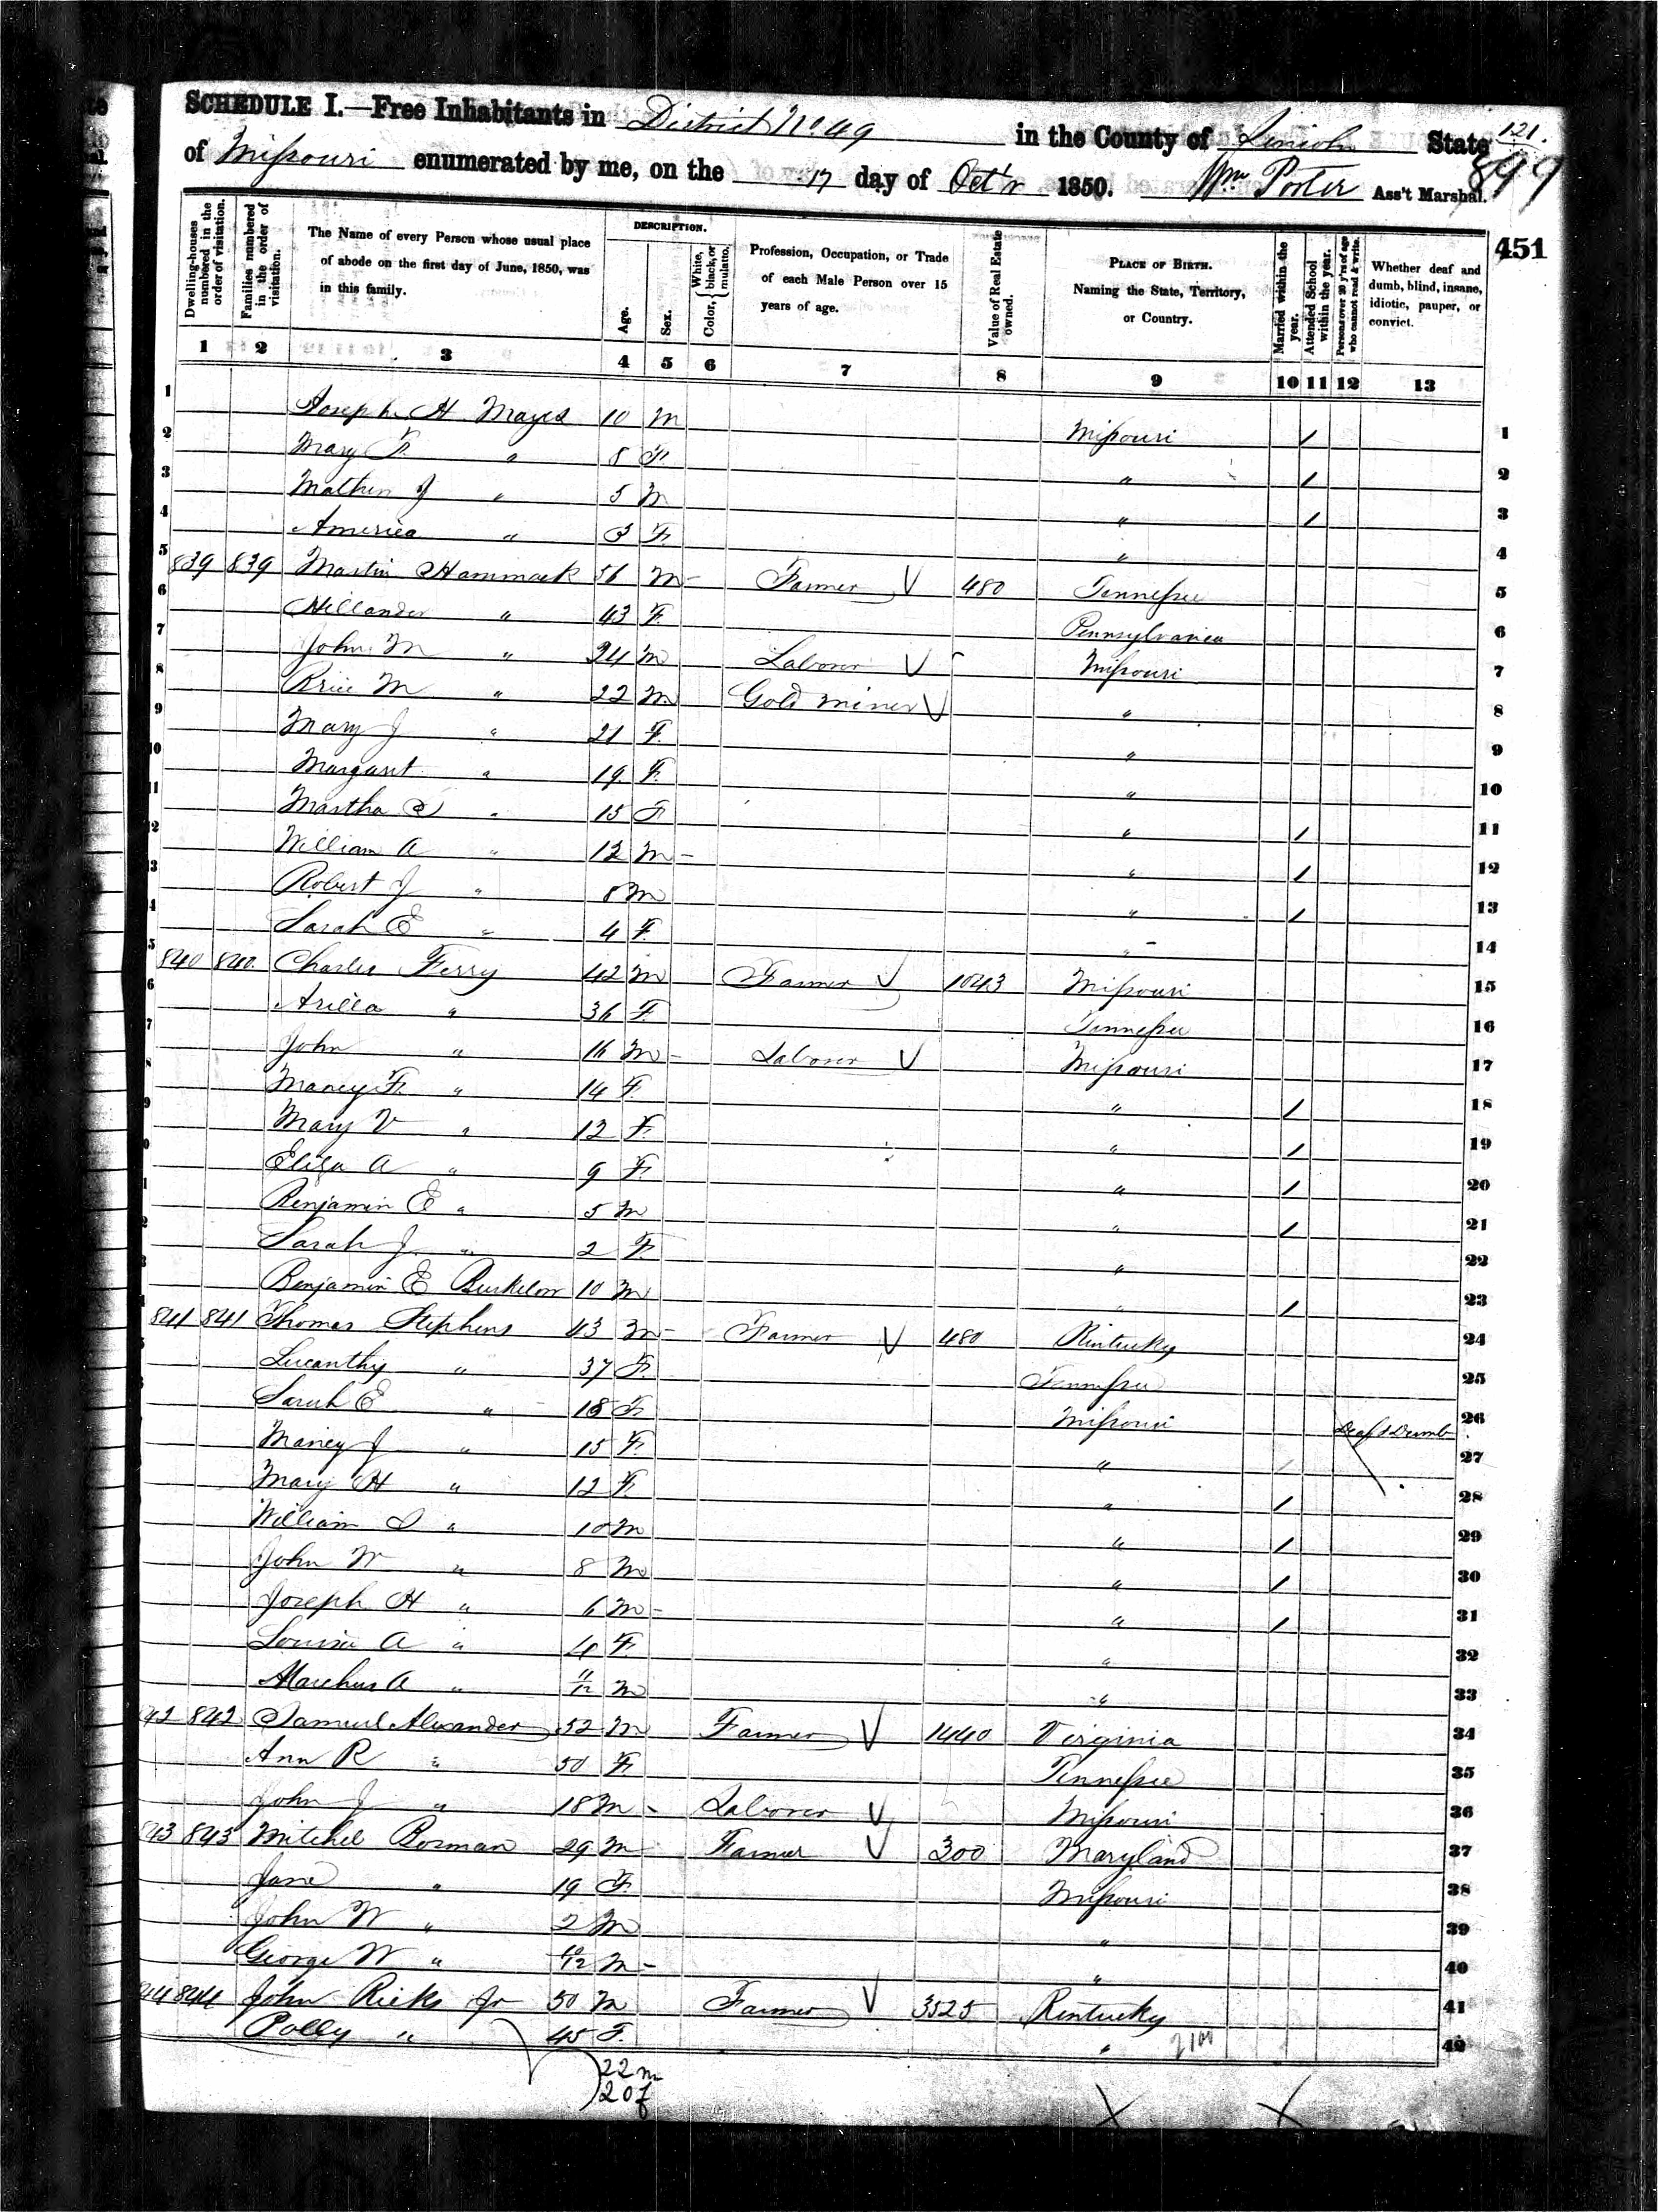 121.
SCHEDULE I.—Free Inhabitants in District No 49 in the County of Lincoln State
899
of Missouri enumerated by me, on the 17 day of Oct'r 1850. Wm Porter Ass't Marshal.
451
Dwelling-houses numbered in the order of visitation.
Families numbered in the order of visitation.
The Name of every Person whose usual place of abode on the first day of June, 1850, was in this family.
DESCRIPTION.
Age.
Sex.
Color, { White, black, or mulatto.
Profession, Occupation, or Trade of each Male Person over 15 years of age.
Value of Real Estate owned.
PLACE OF BIRTH. Naming the State, Territory, or Country.
Married within the year.
Attended School within the year.
Persons over 20 y'rs of age who cannot read & write.
Whether deaf and dumb, blind, insane, idiotic, pauper, or convict.
1 2 3 4 5 6 7 8 9 10 11 12 13
1 Joseph H Mayes 10 M Missouri / 1
2 Mary F " 8 F " / 2
3 Mathew J " 5 M " / 3
4 America " 3 F " 4
5 839 839 Martin Hammack 56 M Farmer 480 Tennessee 5
6 " 43 F Pennsylvania 6
7 John M " 24 M Laborer Missouri 7
8 Brice M " 22 M Gold miner " 8
9 Mary J " 21 F " 9
10 Margaret " 19 F " 10
11 Martha " 15 F " / 11
2 William A " 12 M " / 12
3 Robert J " 8 M " / 13
4 Sarah E " 4 F " 14
5 840 840 Charles Ferry 42 M Farmer 1043 Missouri 15
6 Arilla " 36 F Tennessee 16
7 John " 16 M Laborer Missouri 17
8 Nancy F " 14 F " / 18
9 Mary V " 12 F " / 19
0 Eliza A " 9 F " / 20
1 Benjamin E " 5 M " / 21
2 Sarah J " 2 F " 22
3 Benjamin E 10 M " / 23
4 841 841 Thomas Stephens 43 M Farmer 480 Kentucky 24
5 Lucanthy " 37 F Tennessee 25
Sarah E " 18 F Missouri Deaf & Dumb 26
Nancy J " 15 F " / 27
Mary H " 12 F " / 28
William " 10 M " / 29
John W " 8 M " / 30
Joseph H " 6 M " / 31
Louisa A " 4 F " 32
A " 11/12 M " 33
42 842 Samuel Alexander 52 M Farmer 1440 Virginia 34
Ann R " 50 F Tennessee 35
John J " 18 M Laborer Missouri 36
43 843 Mitchel Bosman 29 M Farmer 300 Maryland 37
Jane " 19 F Missouri 38
John W " 2 M " 39
George W " M " 40
44 844 John Ricks Jr 50 M Farmer 3525 Kentucky 41
Polly " 45 F " 42
22 m
20 f